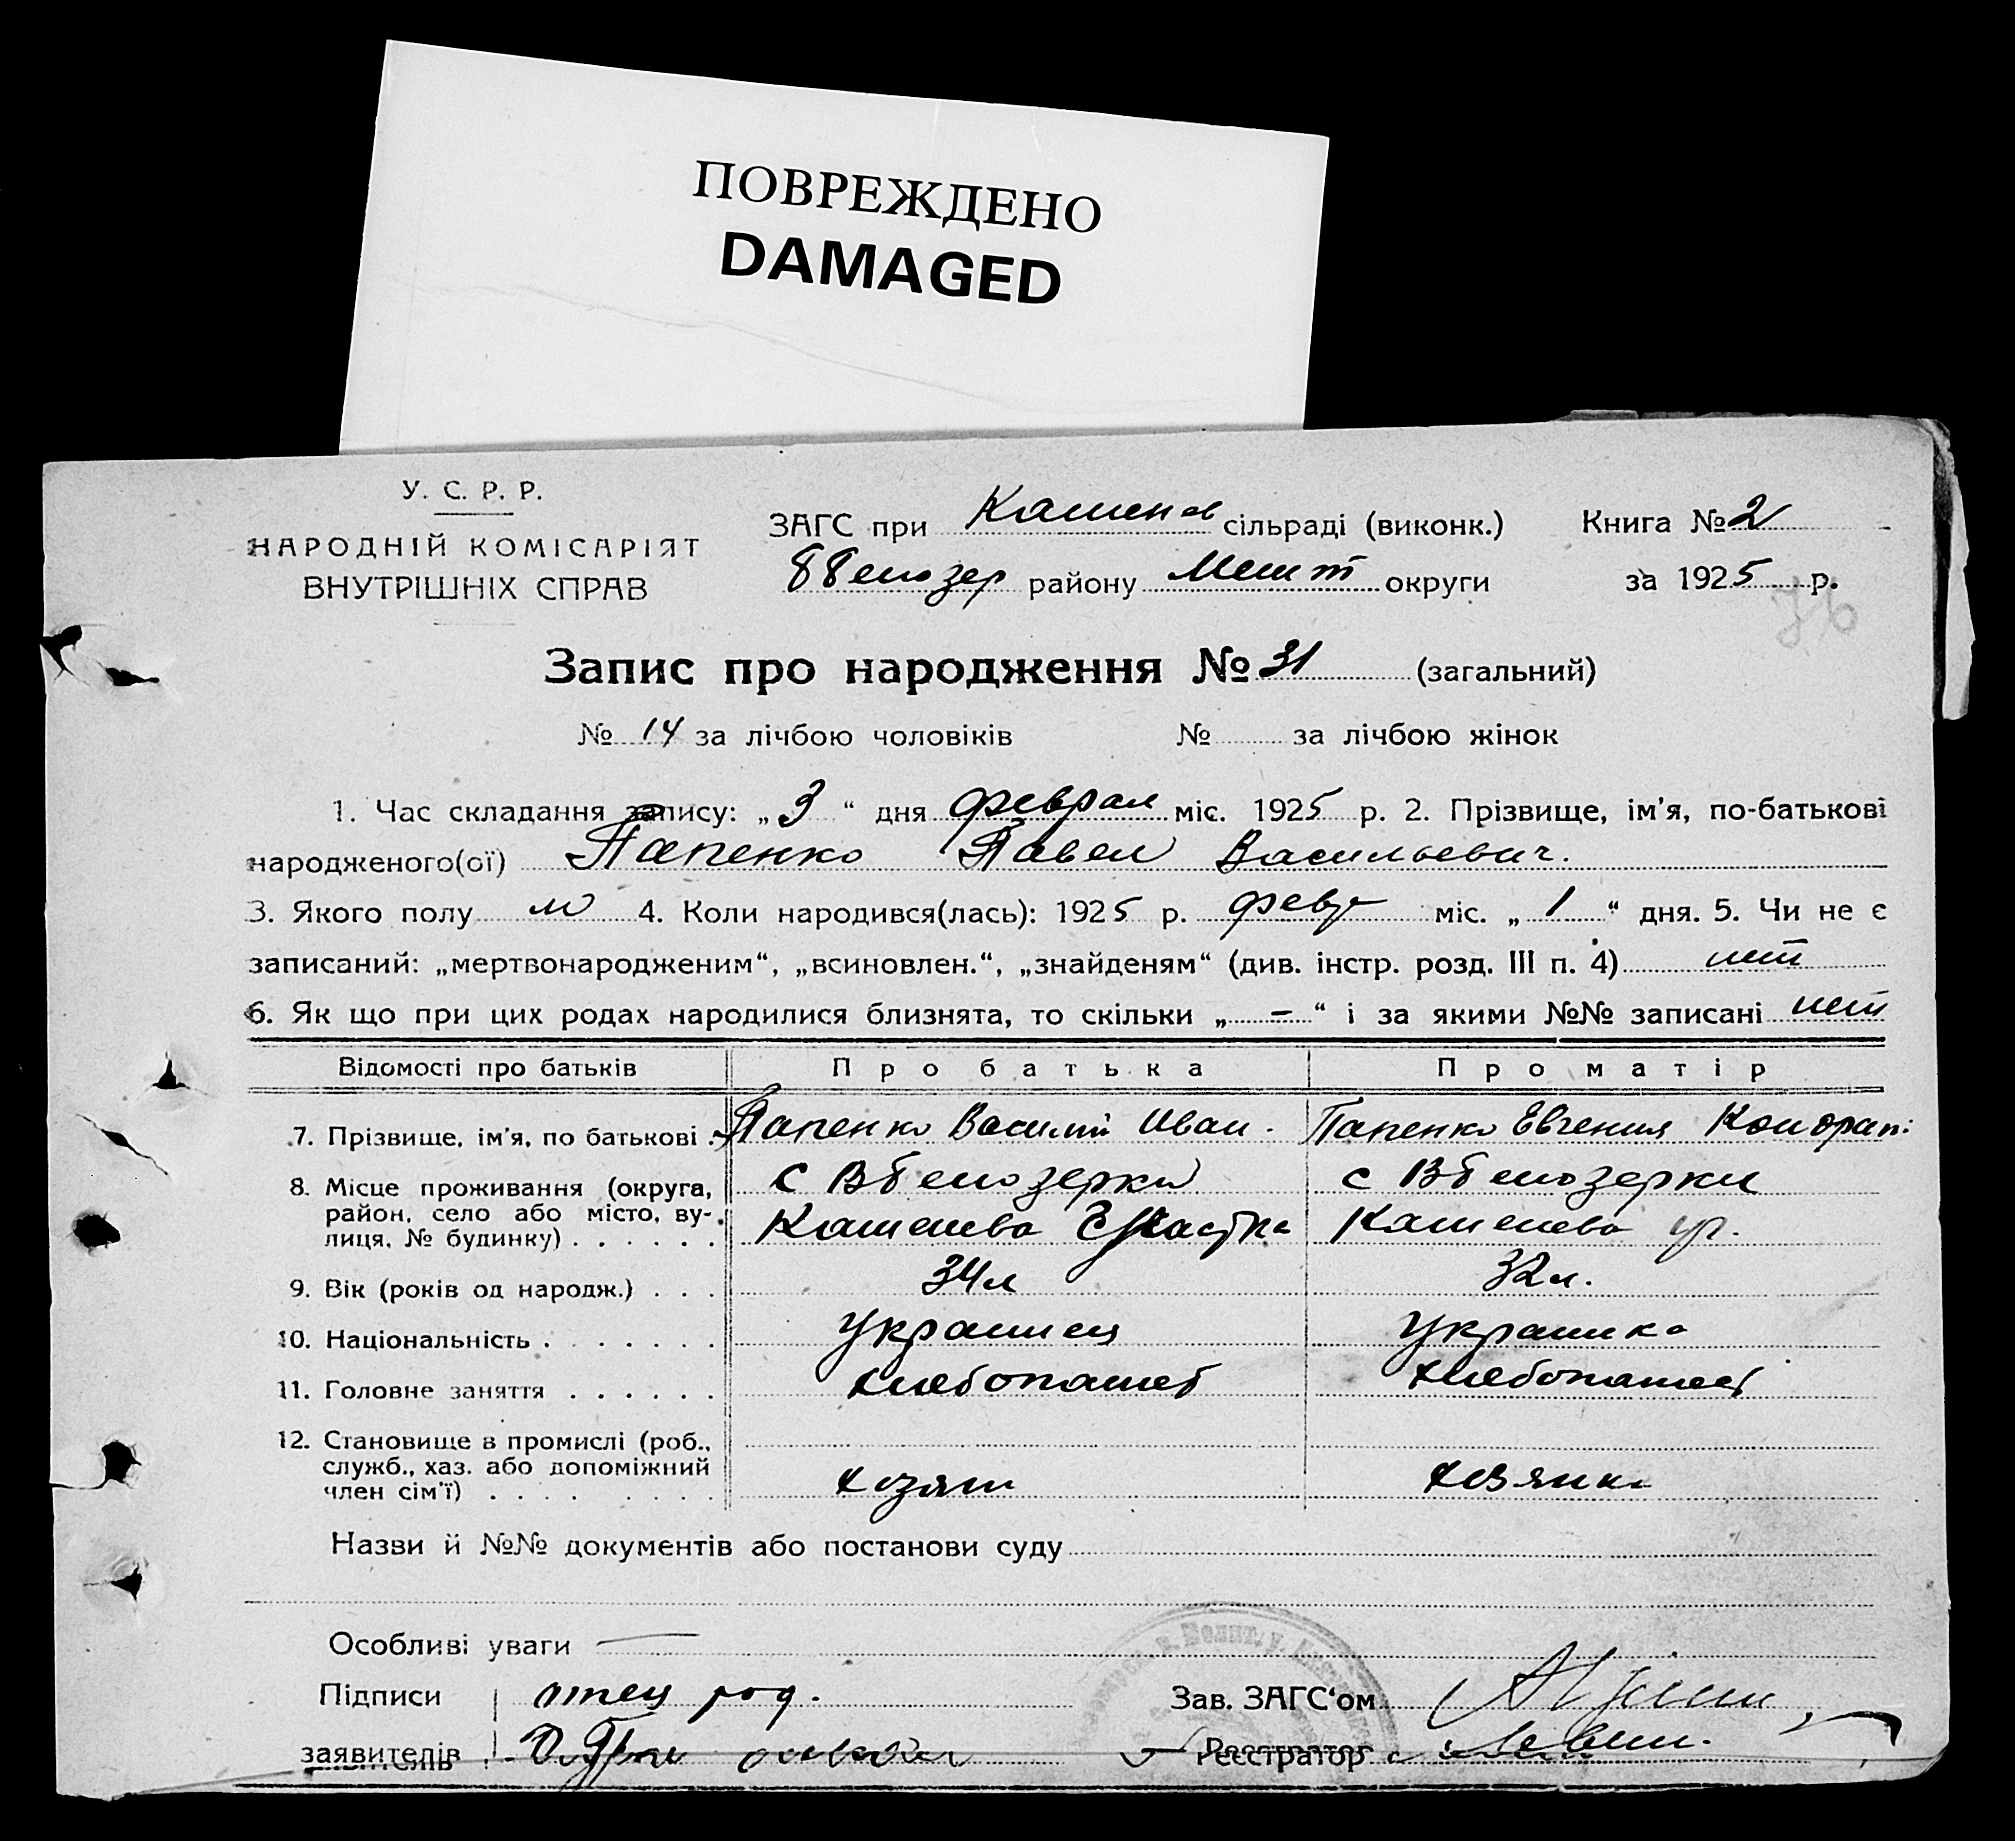 ПОВРЕЖДЕНО
DAMAGED
У. С. Р. Р.
НАРОДНІЙ КОМІСАРІЯТ
ВНУТРІШНІХ СПРАВ
ЗАГС при Кашенов сільраді (виконк.)
ВБелозер району Мелит округи
Книга № 2
за 1925 р.
76
Запис про народження № 31 (загальний)
№ 14 за лічбою чоловіків № за лічбою жінок
1. Час складання запису: „3“ дня феврал міс. 1925 р. 2. Прізвище, ім'я, по-батькові
народженого(ої) Папенко Павел Васильевич.
3. Якого полу м 4. Коли народився(лась): 1925 р. февр міс. „1“ дня. 5. Чи не є
записаний: „мертвонародженим“, „всиновлен.“, „знайденям“ (див. інстр. розд. III п. 4) нет
6. Як що при цих родах народилися близнята, то скільки „–“ і за якими №№ записані нет
Відомості про батьків Про батька Про матір
7. Прізвище, ім'я, по батькові . Папенко Василий Иван. Папенко Евгения Кондрат.
8. Місце проживання (округа, с ВБелозерки с ВБелозерки
район, село або місто, ву-
лиця, № будинку) . . . . . . Кашенова Кашенова
9. Вік (років од народж.) . . . 34л 32л.
10. Національність . . . . . . . Украинец Украинка
11. Головне заняття . . . . . . хлебопашец хлебопашест
12. Становище в промислі (роб.,
служб., хаз. або допоміжний
член сім'ї) . . . . . . . . хозяин хозяйка
Назви й №№ документів або постанови суду
Особливі уваги
Підписи отец род. Зав. ЗАГС'ом
заявителів Реєстратор